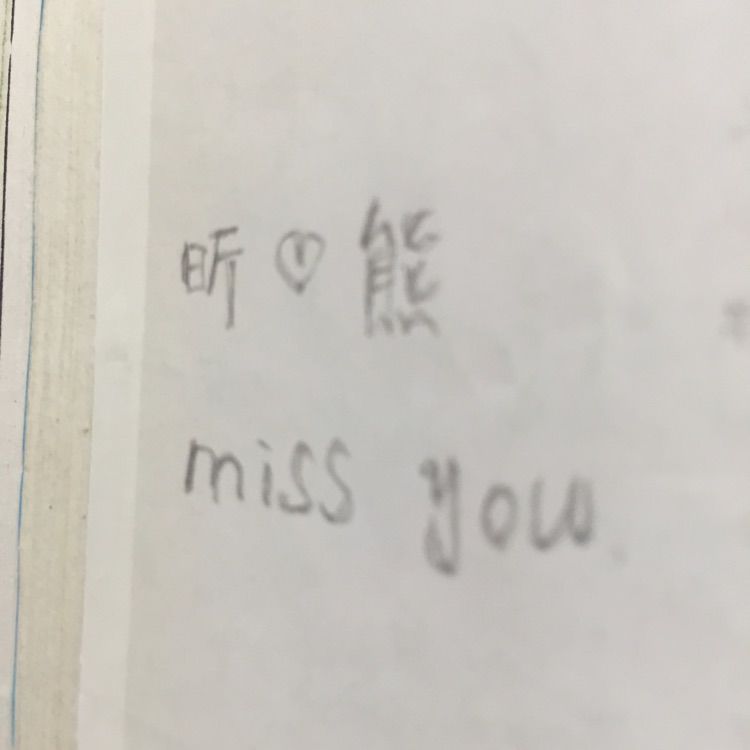 昕♡熊
miss you.